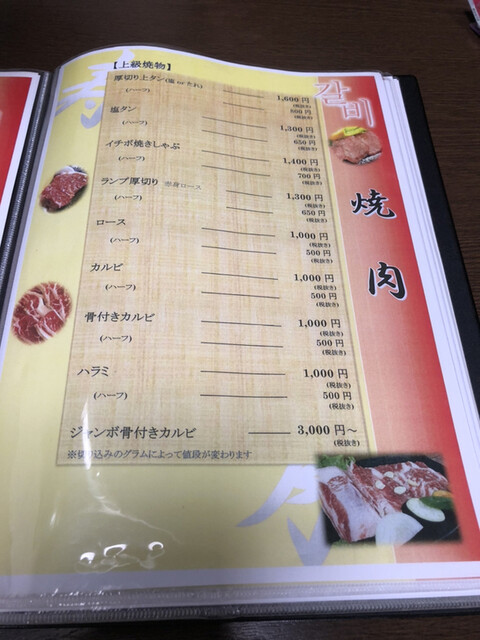 【上級焼物】
厚切り上タン(塩orたれ) 1,600円
(税抜き)
(ハーフ) 800円
(税抜き)
塩タン 1,300円
(税抜き)
(ハーフ) 650円
(税抜き)
イチボ焼きしゃぶ 1,400円
(税抜き)
(ハーフ) 700円
(税抜き)
ランプ厚切り 赤身ロース 1,300円
(税抜き)
(ハーフ) 650円
(税抜き)
ロース 1,000円
(税抜き)
(ハーフ) 500円
(税抜き)
カルビ 1,000円
(税抜き)
(ハーフ) 500円
(税抜き)
骨付きカルビ 1,000円
(税抜き)
(ハーフ) 500円
(税抜き)
ハラミ 1,000円
(税抜き)
(ハーフ) 500円
(税抜き)
ジャンボ骨付きカルビ 3,000円～
(税抜き)
※切り込みのグラムによって値段が変わります
갈비
焼肉